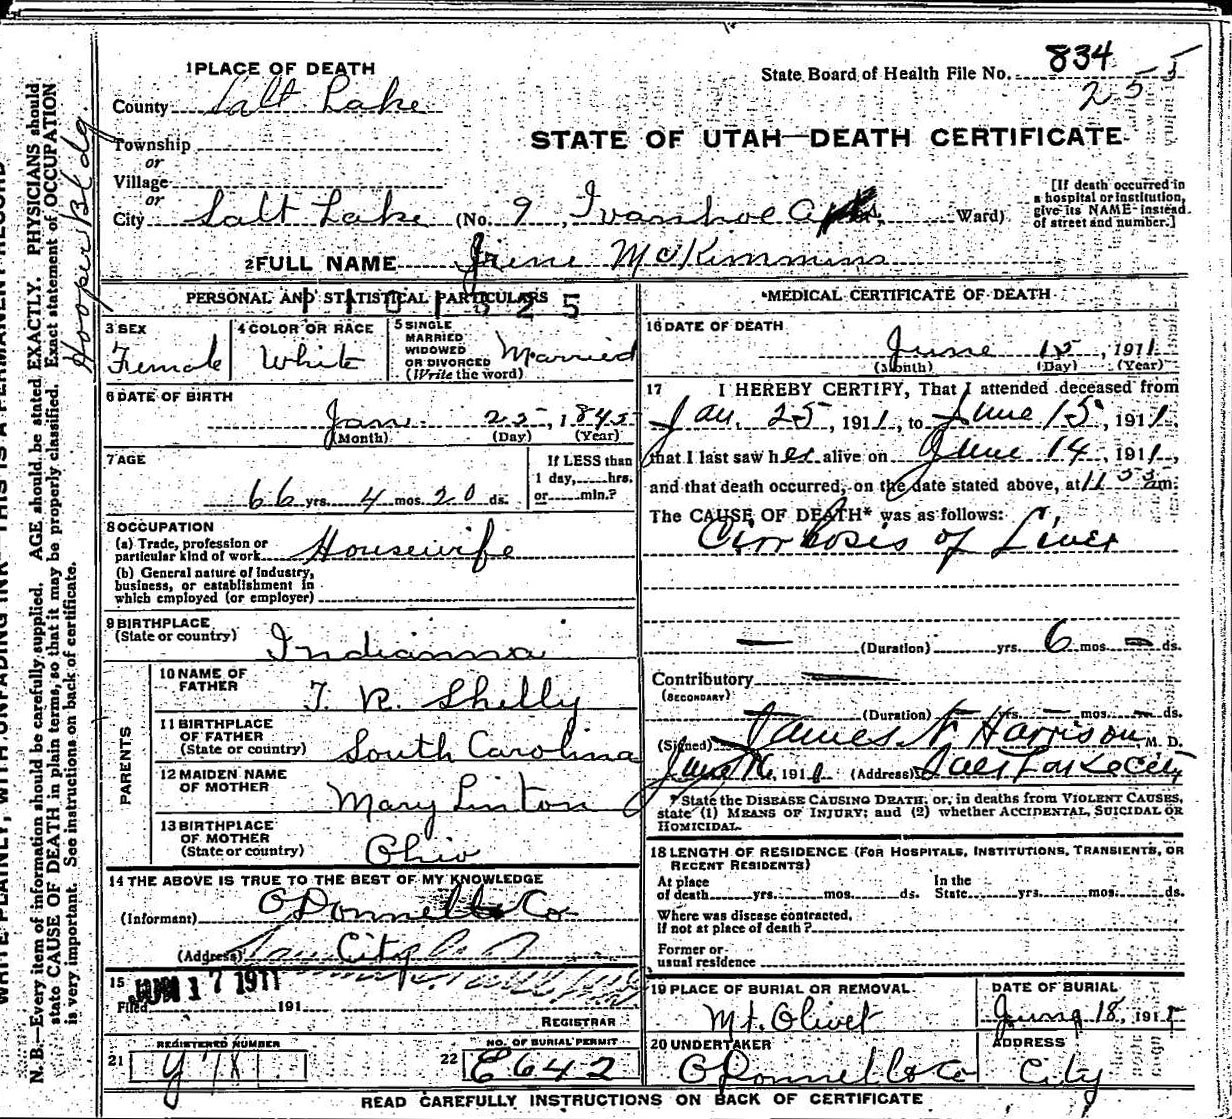 1 PLACE OF DEATH
State Board of Health File No. 834
25-5
County Salt Lake
STATE OF UTAH—DEATH CERTIFICATE
Township
or
Village
or
City Salt Lake (No. 9 Ivanhoe Apts, Ward)
[If death occurred in
a hospital or institution,
give its NAME instead
of street and number.]
2 FULL NAME Irene McKimmins
PERSONAL AND STATISTICAL PARTICULARS
3 SEX
Female
4 COLOR OR RACE
White
5 SINGLE
MARRIED
WIDOWED
OR DIVORCED
(Write the word)
Married
6 DATE OF BIRTH
Jan. 25, 1845
(Month) (Day) (Year)
7 AGE
66 yrs. 4 mos. 20 ds.
If LESS than
1 day, hrs.
or min.?
8 OCCUPATION
(a) Trade, profession or
particular kind of work Housewife
(b) General nature of industry,
business, or establishment in
which employed (or employer)
9 BIRTHPLACE
(State or country) Indianna
PARENTS
10 NAME OF
FATHER T. R. Shelly
11 BIRTHPLACE
OF FATHER
(State or country) South Carolina
12 MAIDEN NAME
OF MOTHER Mary Linton
13 BIRTHPLACE
OF MOTHER
(State or country) Ohio
14 THE ABOVE IS TRUE TO THE BEST OF MY KNOWLEDGE
(Informant) O'Donnell & Co
(Address) City
15
JUN 17 1911
Filed 191
REGISTRAR
21 REGISTERED NUMBER
22 NO. OF BURIAL PERMIT
E642
MEDICAL CERTIFICATE OF DEATH
16 DATE OF DEATH
June 15, 1911
(Month) (Day) (Year)
17 I HEREBY CERTIFY, That I attended deceased from
Jan. 25, 1911, to June 15, 1911,
that I last saw her alive on June 14, 1911,
and that death occurred, on the date stated above, at 11 55 am.
The CAUSE OF DEATH* was as follows:
Cirrhosis of Liver
(Duration) yrs. 6 mos. ds.
Contributory
(SECONDARY)
(Duration) yrs. mos. ds.
(Signed) James N Harrison, M. D.
June 16, 1911 (Address) Salt Lake City
* State the DISEASE CAUSING DEATH, or, in deaths from VIOLENT CAUSES,
state (1) MEANS OF INJURY; and (2) whether ACCIDENTAL, SUICIDAL OR
HOMICIDAL.
18 LENGTH OF RESIDENCE (FOR HOSPITALS, INSTITUTIONS, TRANSIENTS, OR
RECENT RESIDENTS)
At place
of death yrs. mos. ds.
In the
State yrs. mos. ds.
Where was disease contracted,
if not at place of death?
Former or
usual residence
19 PLACE OF BURIAL OR REMOVAL
Mt. Olivet
DATE OF BURIAL
June 18, 191
20 UNDERTAKER
O'Donnell & Co
ADDRESS
City
READ CAREFULLY INSTRUCTIONS ON BACK OF CERTIFICATE
WRITE PLAINLY, WITH UNFADING INK—THIS IS A PERMANENT RECORD
N. B.—Every item of information should be carefully supplied. AGE should be stated EXACTLY. PHYSICIANS should
state CAUSE OF DEATH in plain terms, so that it may be properly classified. Exact statement of OCCUPATION
is very important. See instructions on back of certificate.
Hooper Bldg.